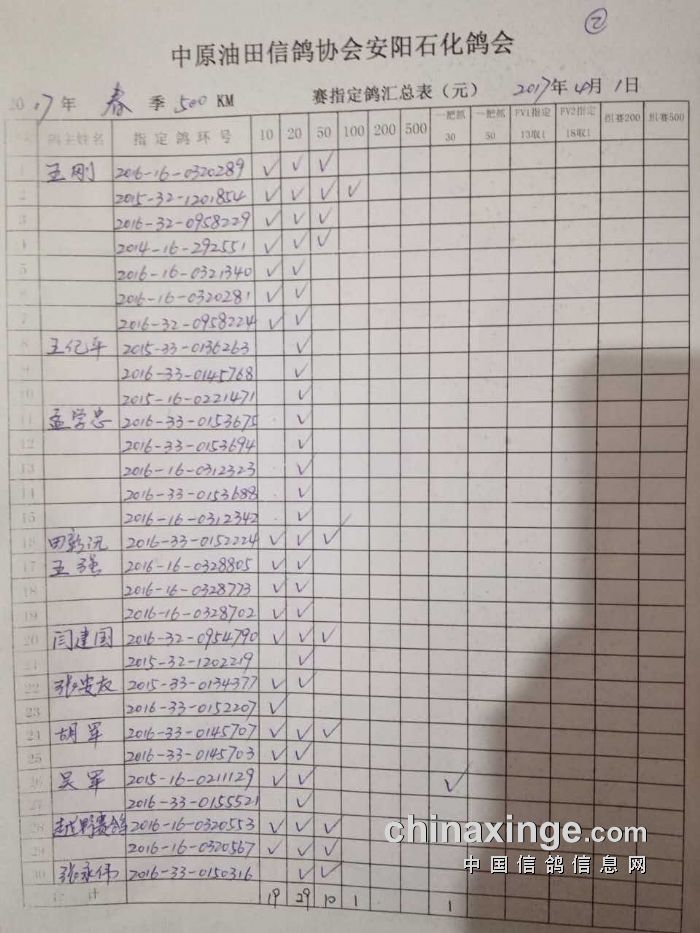 ②
中原油田信鸽协会安阳石化鸽会
2017年 春 季 500 KM 赛指定鸽汇总表（元） 2017年4月1日
鸽主姓名 指定鸽环号 10 20 50 100 200 500 一把抓30 一把抓50 PV1指定13取1 PV2指定18取1 组赛200 组赛500
1 王刚 2016-16-0320289 ✓ ✓ ✓
2 2015-32-1201854 ✓ ✓ ✓ ✓
3 2016-32-0958229 ✓ ✓ ✓
4 2014-16-292551 ✓ ✓ ✓
5 2016-16-0321340 ✓ ✓
6 2016-16-0320281 ✓ ✓
7 2016-32-0958224 ✓ ✓
8 王亿年 2015-33-0136263 ✓
9 2016-33-0145768 ✓
10 2015-16-0221471 ✓
11 孟学忠 2016-33-0153675 ✓
12 2016-33-0153694 ✓
13 2016-16-0312323 ✓
14 2016-33-0153688 ✓
15 2016-16-0312342 ✓
16 2016-33-0152224 ✓ ✓ ✓
17 王强 2016-16-0328805 ✓ ✓
18 2016-16-0328773 ✓ ✓
19 2016-16-0328702 ✓ ✓
20 闫建国 2016-32-0954790 ✓ ✓ ✓
21 2015-32-1202219 ✓
22 张安友 2015-33-0134377 ✓ ✓
23 2016-33-0152207 ✓
24 胡军 2016-33-0145707 ✓ ✓ ✓
25 2016-33-0145703 ✓ ✓
26 吴军 2015-16-0211129 ✓ ✓ ✓
27 2016-33-0155521 ✓
28 越野赛鸽 2016-16-0320553 ✓ ✓ ✓
29 2016-16-0320567 ✓ ✓ ✓
30 张永伟 2016-33-0150316 ✓ ✓
合计 19 29 10 1 1
chinaxinge.com
中国信鸽信息网